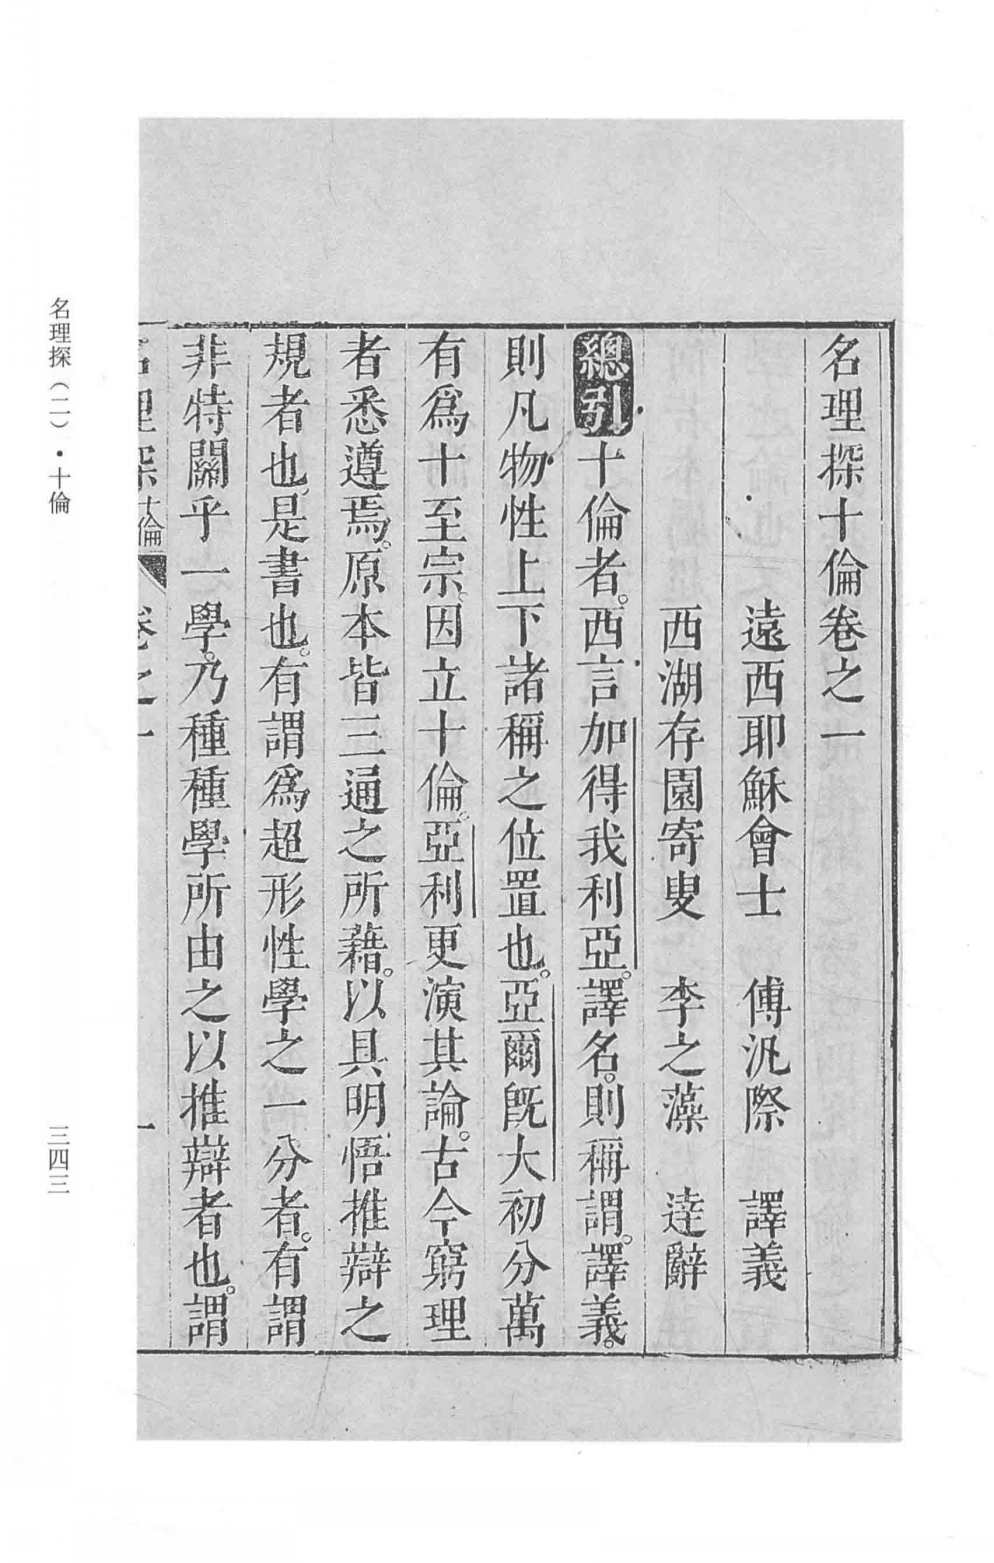 名理探十倫卷之一
遠西耶穌會士　傅汎際　譯義
西湖存園寄叟　李之藻　達辭
總引十倫者。西言加得我利亞。譯名。則稱謂。譯義。
則凡物性上下諸稱之位置也。亞爾旣大初分萬
有爲十至宗。因立十倫。亞利更演其論。古今窮理
者悉遵焉。原本皆三通之所藉。以具明悟推辯之
規者也。是書也。有謂爲超形性學之一分者。有謂
非特關乎一學。乃種種學所由之以推辯者也。謂
名理探十倫　卷之一　一
名理探（二）・十倫
三四三